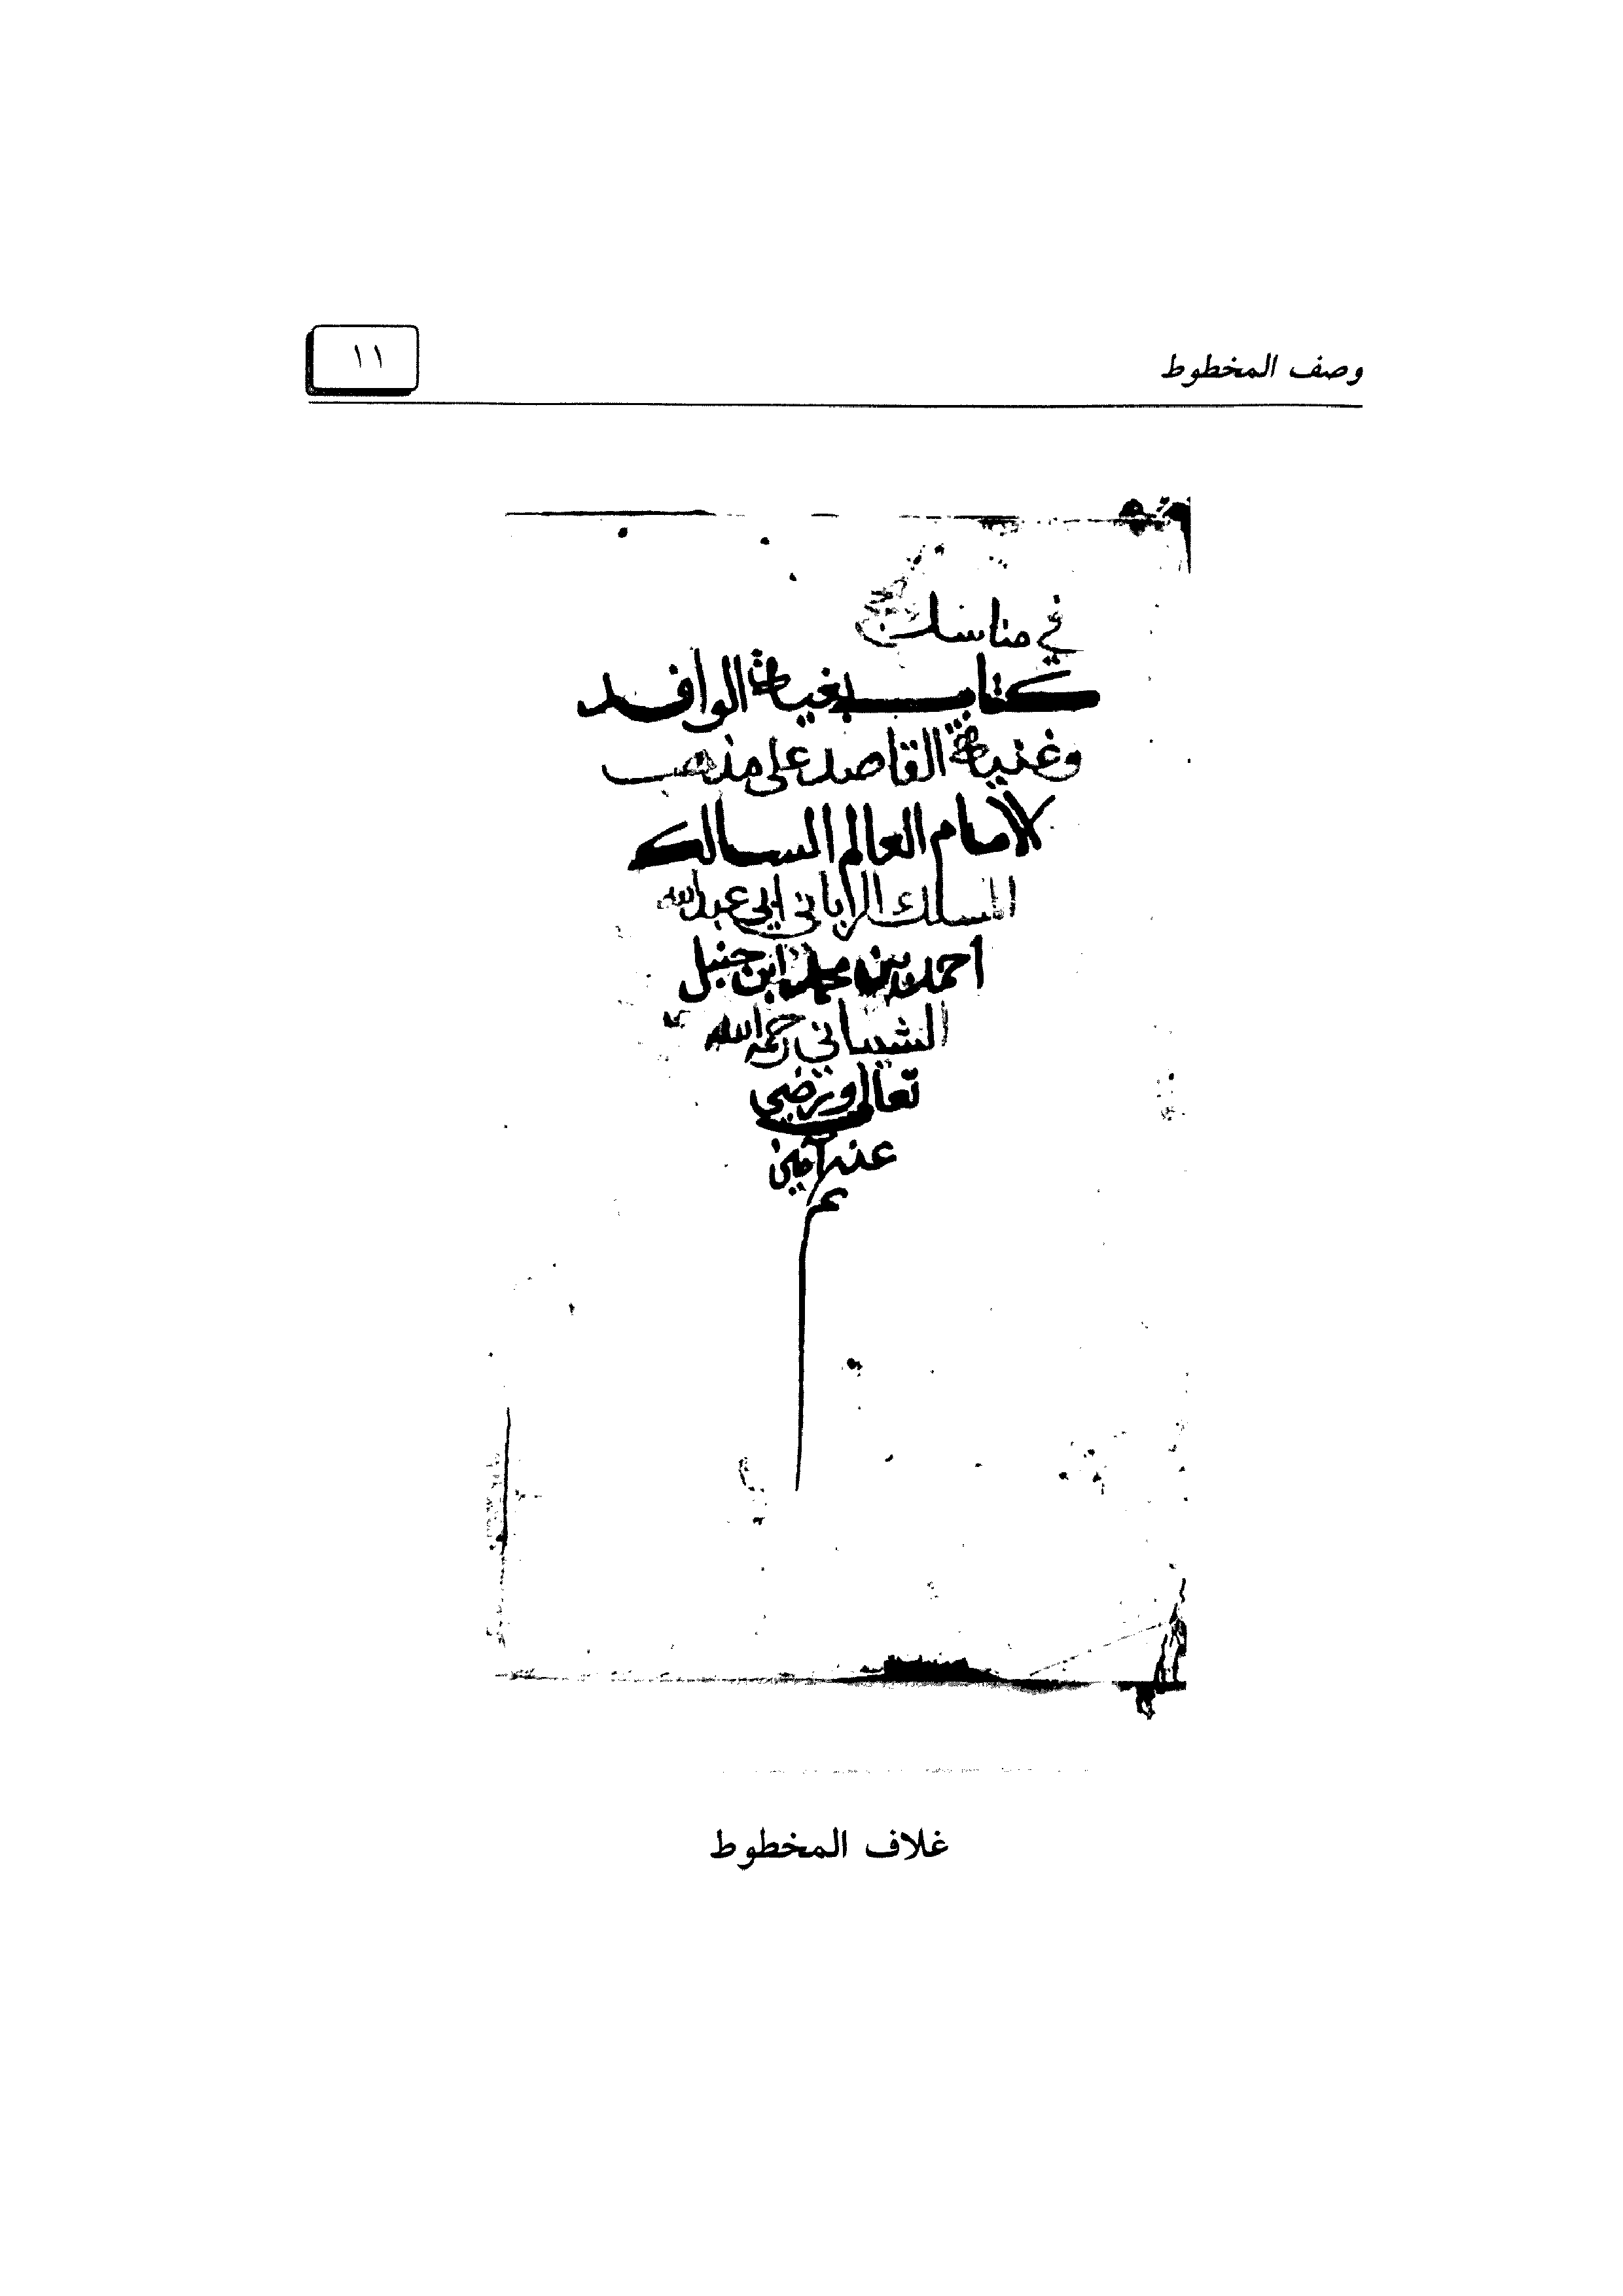 وصف المخطوط
١١
في مناسك
كتاب بغية الوافد
وغنية القاصد على مذهب
الامام العالم السالك
المسلك الرباني ابي عبد الله
احمد بن محمد ابن حنبل
الشيباني رحمه الله
تعالى ورضي
عنه آمين
م
غلاف المخطوط